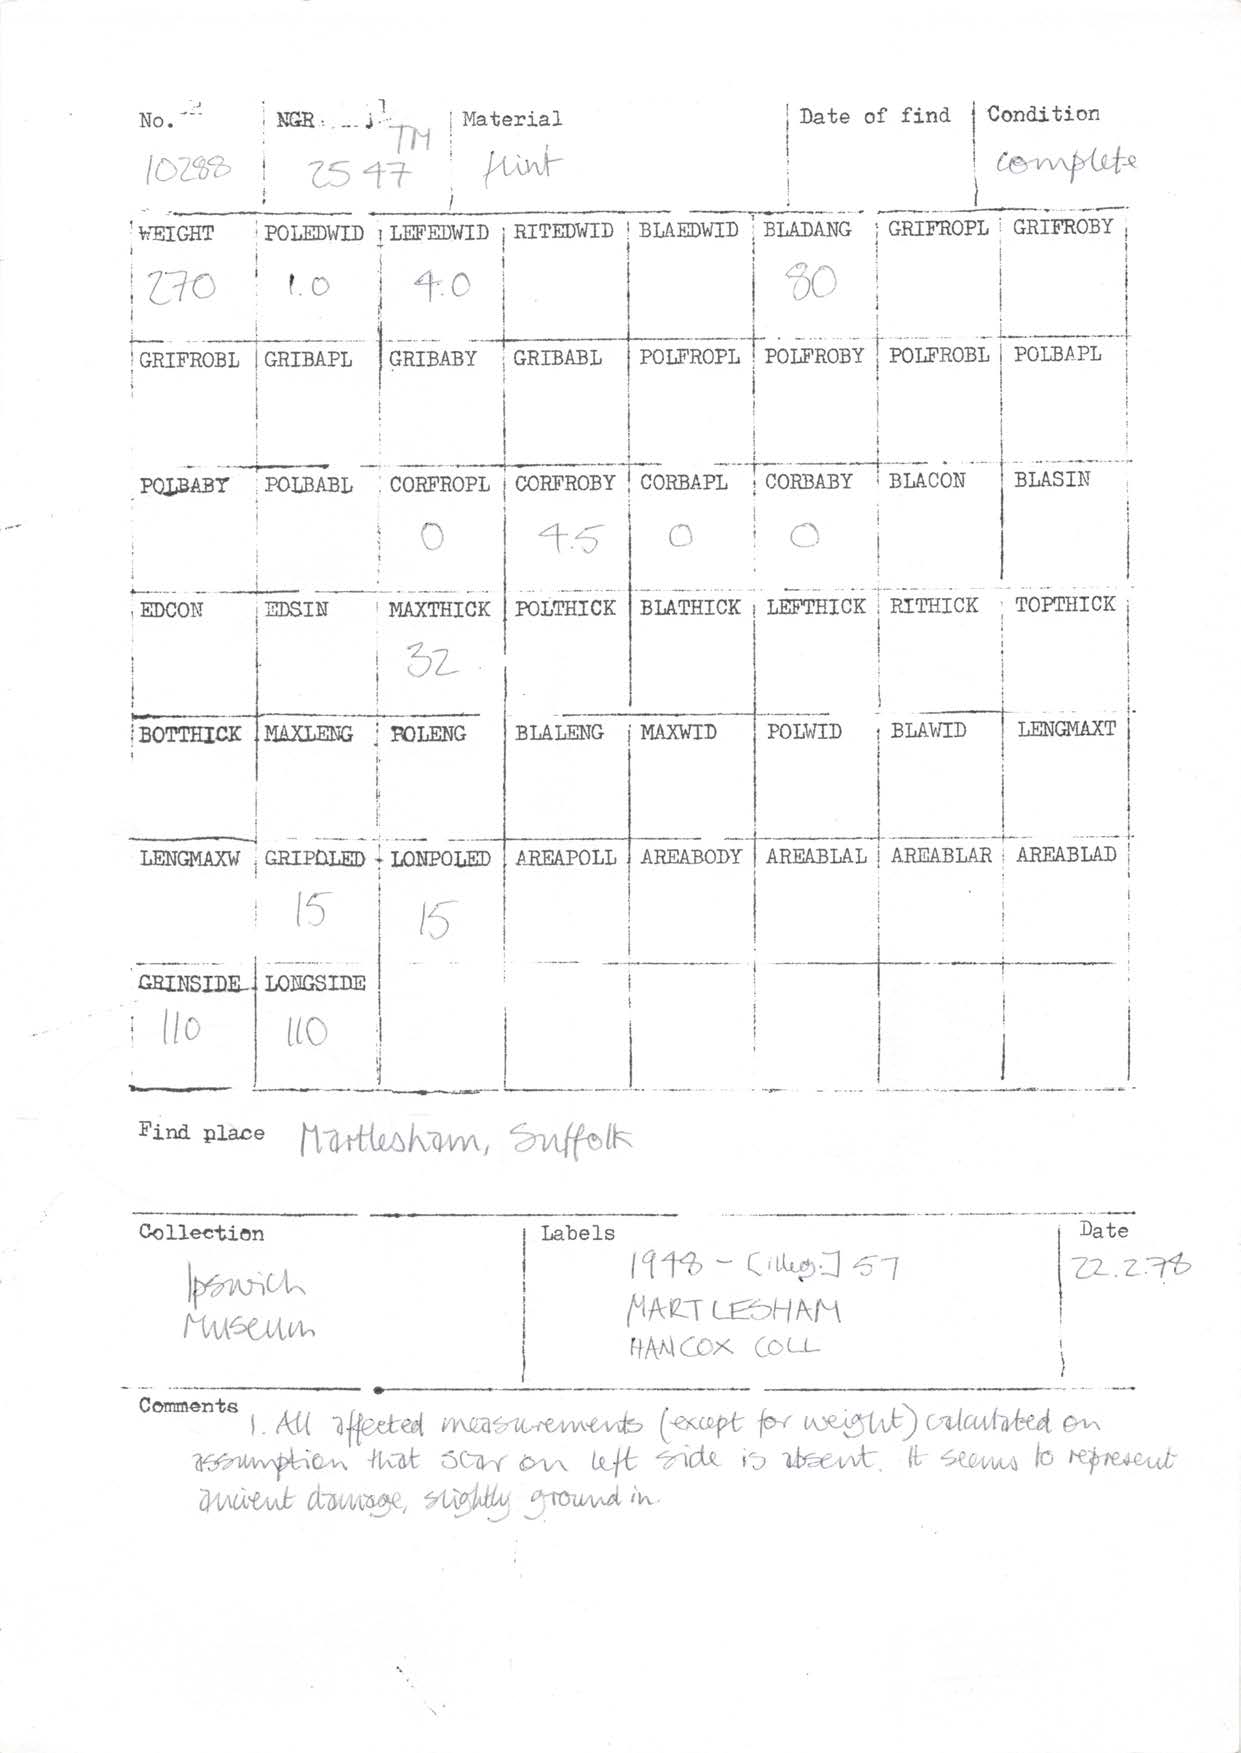 No. NGR Material Date of find Condition
10288 TM 2547 flint complete
WEIGHT POLEDWID LEFEDWID RITEDWID BLAEDWID BLADANG GRIFROPL GRIFROBY
270 1.0 4.0 80
GRIFROBL GRIBAPL GRIBABY GRIBABL POLFROPL POLFROBY POLFROBL POLBAPL
POLBABY POLBABL CORFROPL CORFROBY CORBAPL CORBABY BLACON BLASIN
0 4.5 0 0
EDCON EDSIN MAXTHICK POLTHICK BLATHICK LEFTHICK RITHICK TOPTHICK
32
BOTTHICK MAXLENG POLENG BLALENG MAXWID POLWID BLAWID LENGMAXT
LENGMAXW GRIPOLED LONPOLED AREAPOLL AREABODY AREABLAL AREABLAR AREABLAD
15 15
GRINSIDE LONGSIDE
110 110
Find place Martlesham, Suffolk
Collection Labels Date
Ipswich Museum
1948 - [illeg.] 57
MARTLESHAM
HANCOX COLL
22.2.78
Comments 1. All affected measurements (except for weight) calculated on
assumption that scar on left side is absent. It seems to represent
ancient damage, slightly ground in.